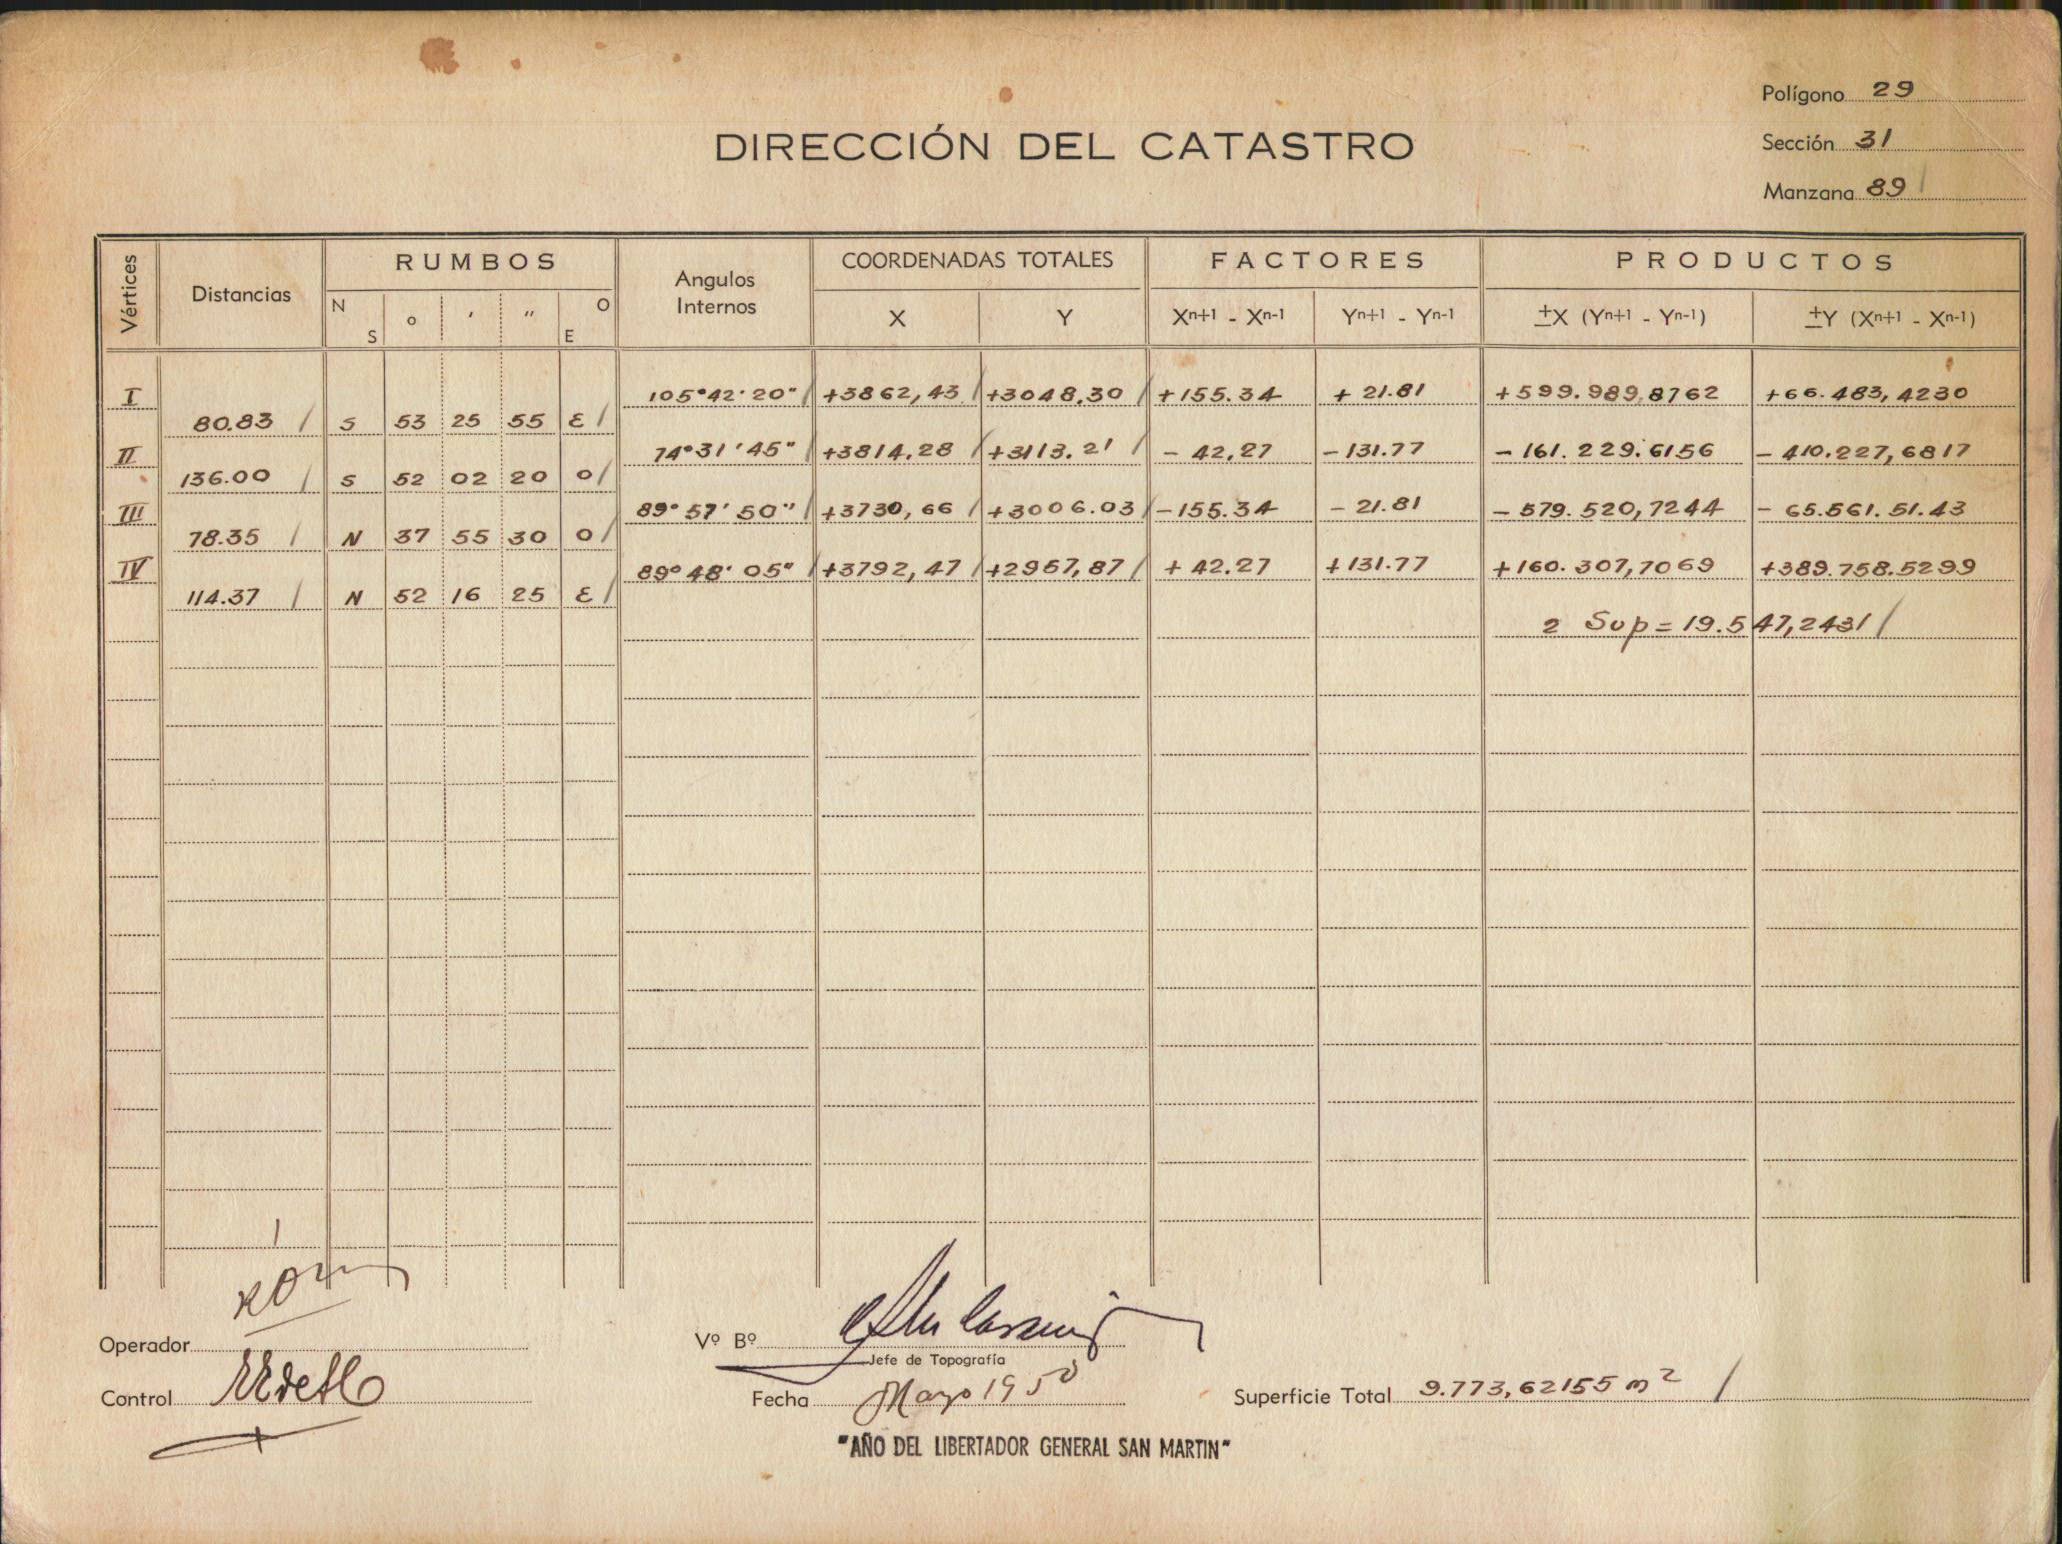 Polígono 29
DIRECCIÓN DEL CATASTRO
Sección 31
Manzana 89
Vértices Distancias RUMBOS Angulos Internos COORDENADAS TOTALES FACTORES PRODUCTOS
N S o ' " O E X Y Xn+1 - Xn-1 Yn+1 - Yn-1 ±X (Yn+1 - Yn-1) ±Y (Xn+1 - Xn-1)
I 105°42'20" +3862,43 +3048.30 +155.34 + 21.81 +599.989,8762 +66.483,4230
80.83 S 53 25 55 E
II 74°31'45" +3814.28 +3113.21 - 42,27 -131.77 - 161.229.6156 - 410.227,6817
136.00 S 52 02 20 O
III 89°57'50" +3730,66 +3006.03 -155.34 - 21.81 - 579.520,7244 - 65.561.51.43
78.35 N 37 55 30 O
IV 89°48'05" +3792,47 +2957,87 + 42.27 +131.77 +160.307,7069 +389.758.5299
114.37 N 52 16 25 E
2 Sup = 19.547,2431
Operador
Vº Bº
Jefe de Topografía
Control
Fecha Mayo 1950
Superficie Total 9.773,62155 m2
"AÑO DEL LIBERTADOR GENERAL SAN MARTIN"